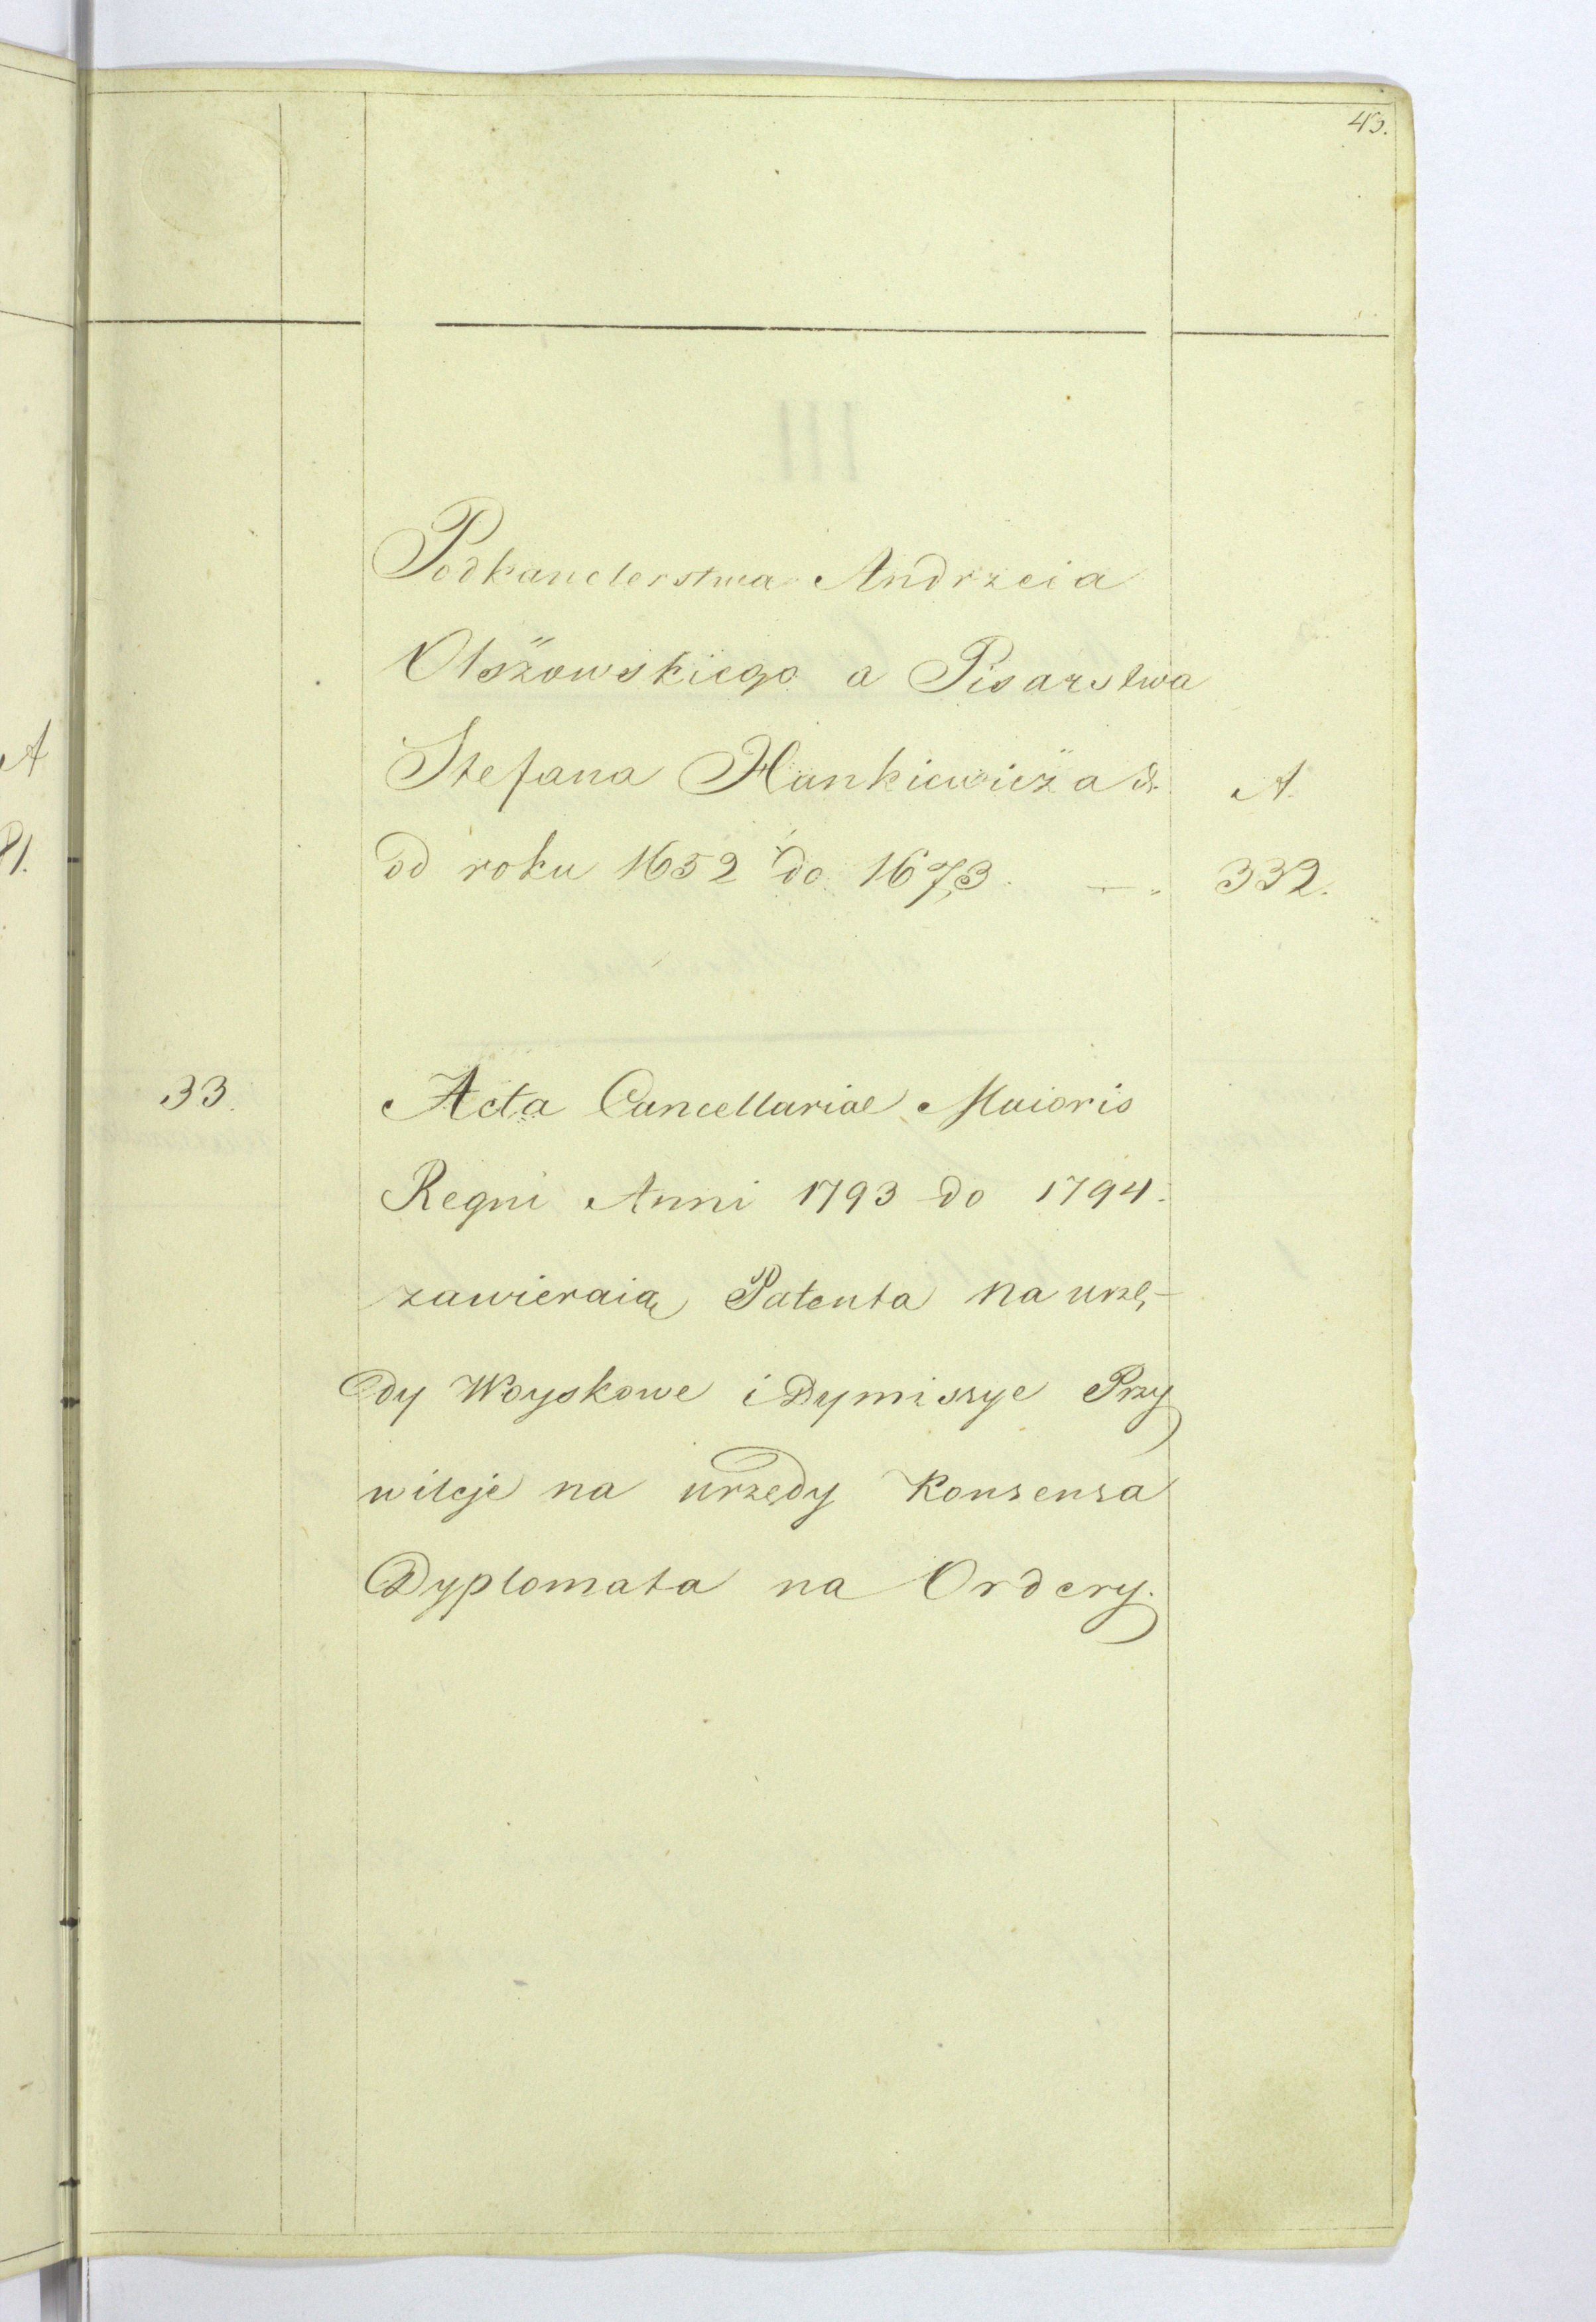 43.
Podkanclerstwa Andrzeia
Olszowskiego a Pisarstwa
Stefana Hankiewicza &. A.
od roku 1652 do 1673. — „ 332.
33. Acta Cancellariae Maioris
Regni Anni 1793 do 1794.
zawieraią Patenta na urzę-
dy Woyskowe i Dymissye Przy
wileje na urzędy Konsensa
Dyplomata na Ordery.
A
81.